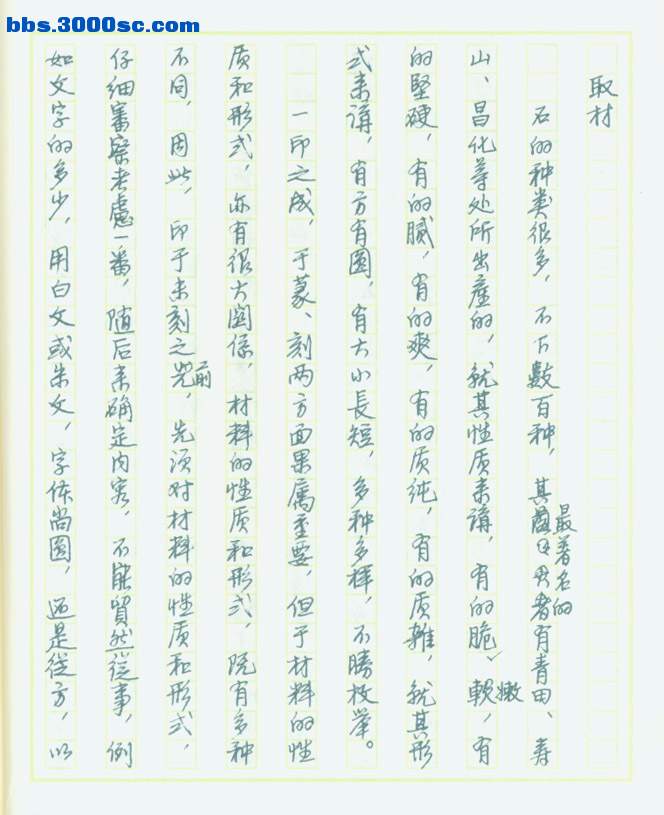 bbs.3000sc.com
取材
石的种类很多，不下数百种，其最著名的者有青田、寿
山、昌化等处所出產的，就其性质来講，有的脆、軟嫩，有
的堅硬，有的腻，有的爽，有的质纯，有的质雜，就其形
式来講，有方有圆，有大小長短，多种多样，不勝枚举。
一印之成，于篆、刻两方面果属重要，但于材料的性
质和形式，亦有很大関係，材料的性质和形式，既有多种
不同，因此，印于未刻之前，先须对材料的性质和形式，
仔细審察考慮一番，随后来确定内容，不能貿然從事，例
如文字的多少，用白文或朱文，字体尚圆，还是從方，以